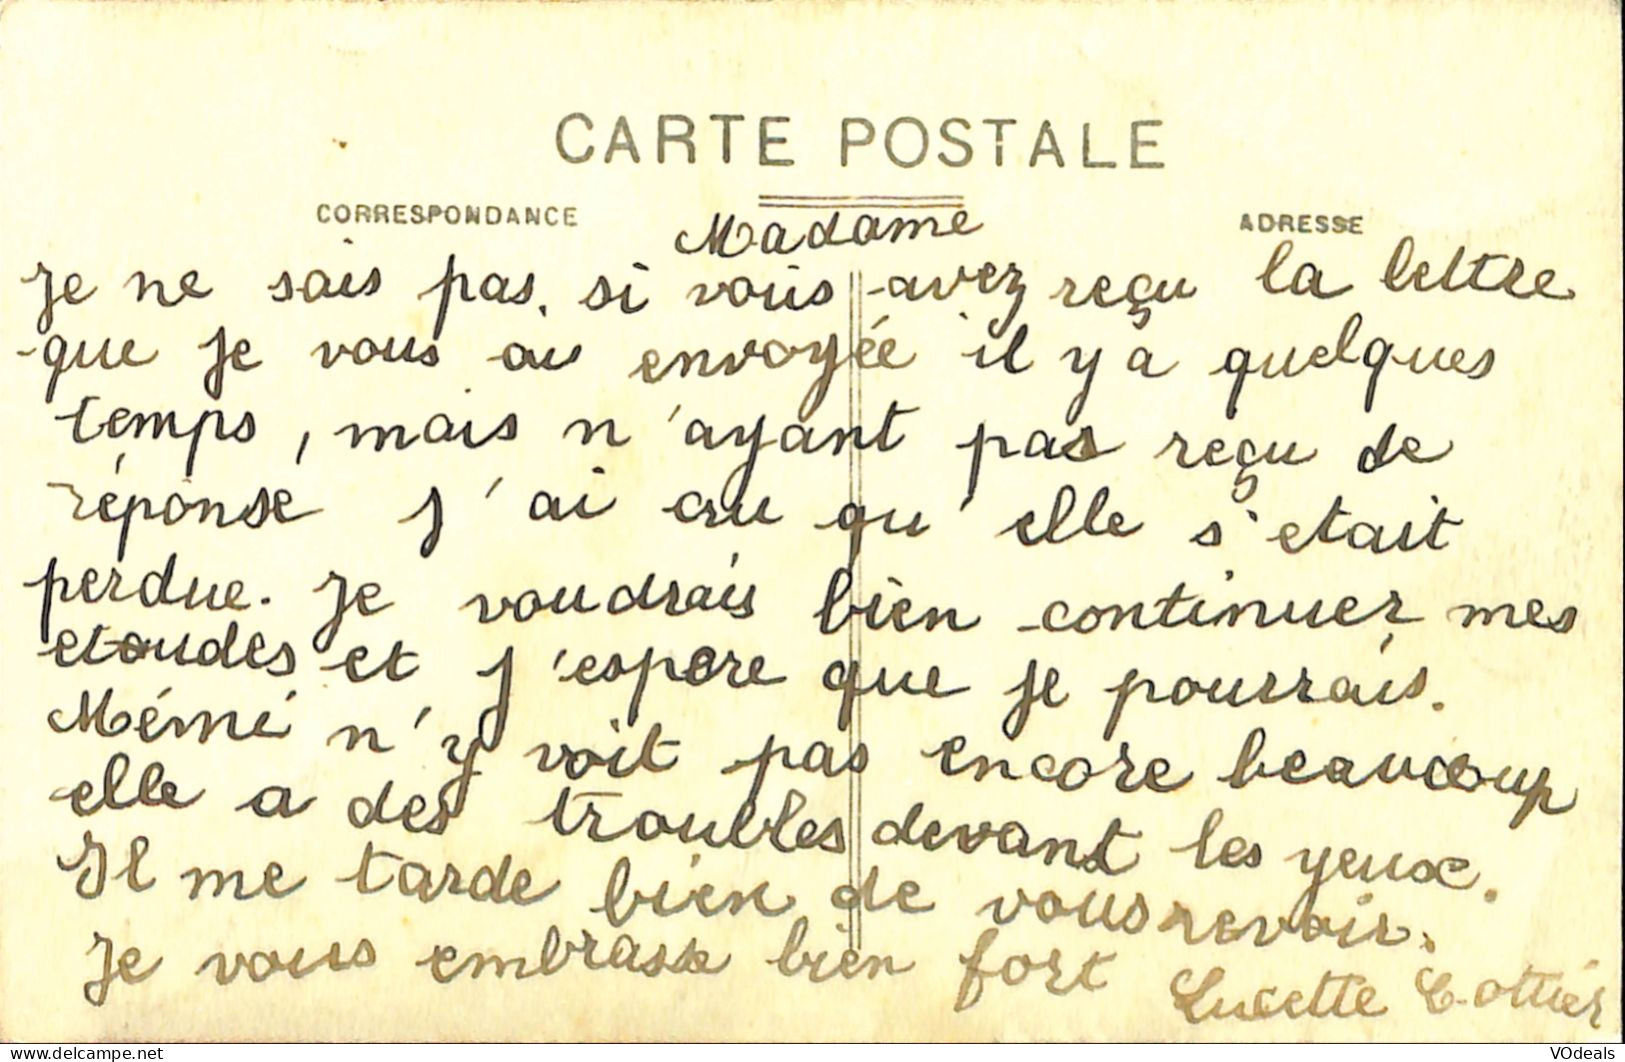 CARTE POSTALE
CORRESPONDANCE
ADRESSE
Madame
Je ne sais pas, si vous avez reçu la lettre
que je vous ai envoyée il y a quelques
temps, mais n'ayant pas reçu de
réponse j'ai cru qu'elle s'etait
perdue. Je voudrais bien continuer mes
etoudes et j'espere que je pourrais.
Mémé n'y voit pas encore beaucoup
elle a des troubles devant les yeux.
Il me tarde bien de vous revoir.
Je vous embrasse bien fort
Lucette Cottier
delcampe.net
VOdeals